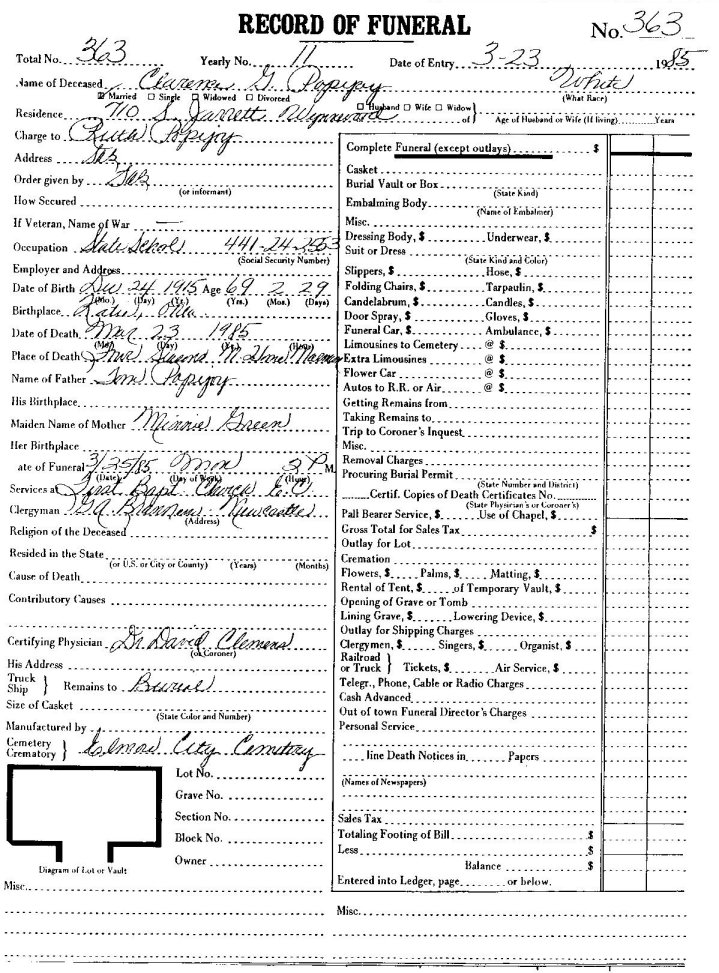 RECORD OF FUNERAL
No. 363
Total No. 363 Yearly No. 11 Date of Entry 3-23 1985
Name of Deceased Clarence G. Popijoy White
Married Single Widowed Divorced (What Race)
Residence 710 S. Jarrett Wynnewood Husband Wife Widow } of Age of Husband or Wife (If living) Years
Charge to Ruth Popijoy
Address
Order given by
(or informant)
How Secured
If Veteran, Name of War —
Occupation State School 441-24-2553
(Social Security Number)
Employer and Address
Date of Birth Dec 24 1915 Age 69 2 29
(Mo.) (Day) (Yr.) (Yrs.) (Mos.) (Days)
Birthplace Okla
Date of Death Mar 23 1985
(Mo.) (Day) (Yr.) (Hour)
Place of Death
Name of Father Tom Popijoy
His Birthplace
Maiden Name of Mother Minnie Green
Her Birthplace
ate of Funeral 3/25/85 Mon 2 P M.
(Date) (Day of Week) (Hour)
Services at First Bapt. Church E.C.
Clergyman Newcastle
(Address)
Religion of the Deceased
Resided in the State
(or U.S. or City or County) (Years) (Months)
Cause of Death
Contributory Causes
Certifying Physician Dr. David Clemens
(or Coroner)
His Address
Truck
Ship } Remains to Burial
Size of Casket
(State Color and Number)
Manufactured by
Cemetery
Crematory } Elmore City Cemetery
Lot No.
Grave No.
Section No.
Block No.
Owner
Diagram of Lot or Vault
Misc.
Complete Funeral (except outlays) $
Casket
Burial Vault or Box
(State Kind)
Embalming Body
(Name of Embalmer)
Misc.
Dressing Body, $ Underwear, $
Suit or Dress
(State Kind and Color)
Slippers, $ Hose, $
Folding Chairs, $ Tarpaulin, $
Candelabrum, $ Candles, $
Door Spray, $ Gloves, $
Funeral Car, $ Ambulance, $
Limousines to Cemetery @ $
Extra Limousines @ $
Flower Car @ $
Autos to R.R. or Air @ $
Getting Remains from
Taking Remains to
Trip to Coroner's Inquest
Misc.
Removal Charges
Procuring Burial Permit
(State Number and District)
Certif. Copies of Death Certificates No.
(State Physician's or Coroner's)
Pall Bearer Service, $ Use of Chapel, $
Gross Total for Sales Tax $
Outlay for Lot
Cremation
Flowers, $ Palms, $ Matting, $
Rental of Tent, $ of Temporary Vault, $
Opening of Grave or Tomb
Lining Grave, $ Lowering Device, $
Outlay for Shipping Charges
Clergymen, $ Singers, $ Organist, $
Railroad
or Truck } Tickets, $ Air Service, $
Telegr., Phone, Cable or Radio Charges
Cash Advanced
Out of town Funeral Director's Charges
Personal Service
line Death Notices in Papers
(Names of Newspapers)
Sales Tax
Totaling Footing of Bill $
Less $
Balance $
Entered into Ledger, page or below.
Misc.